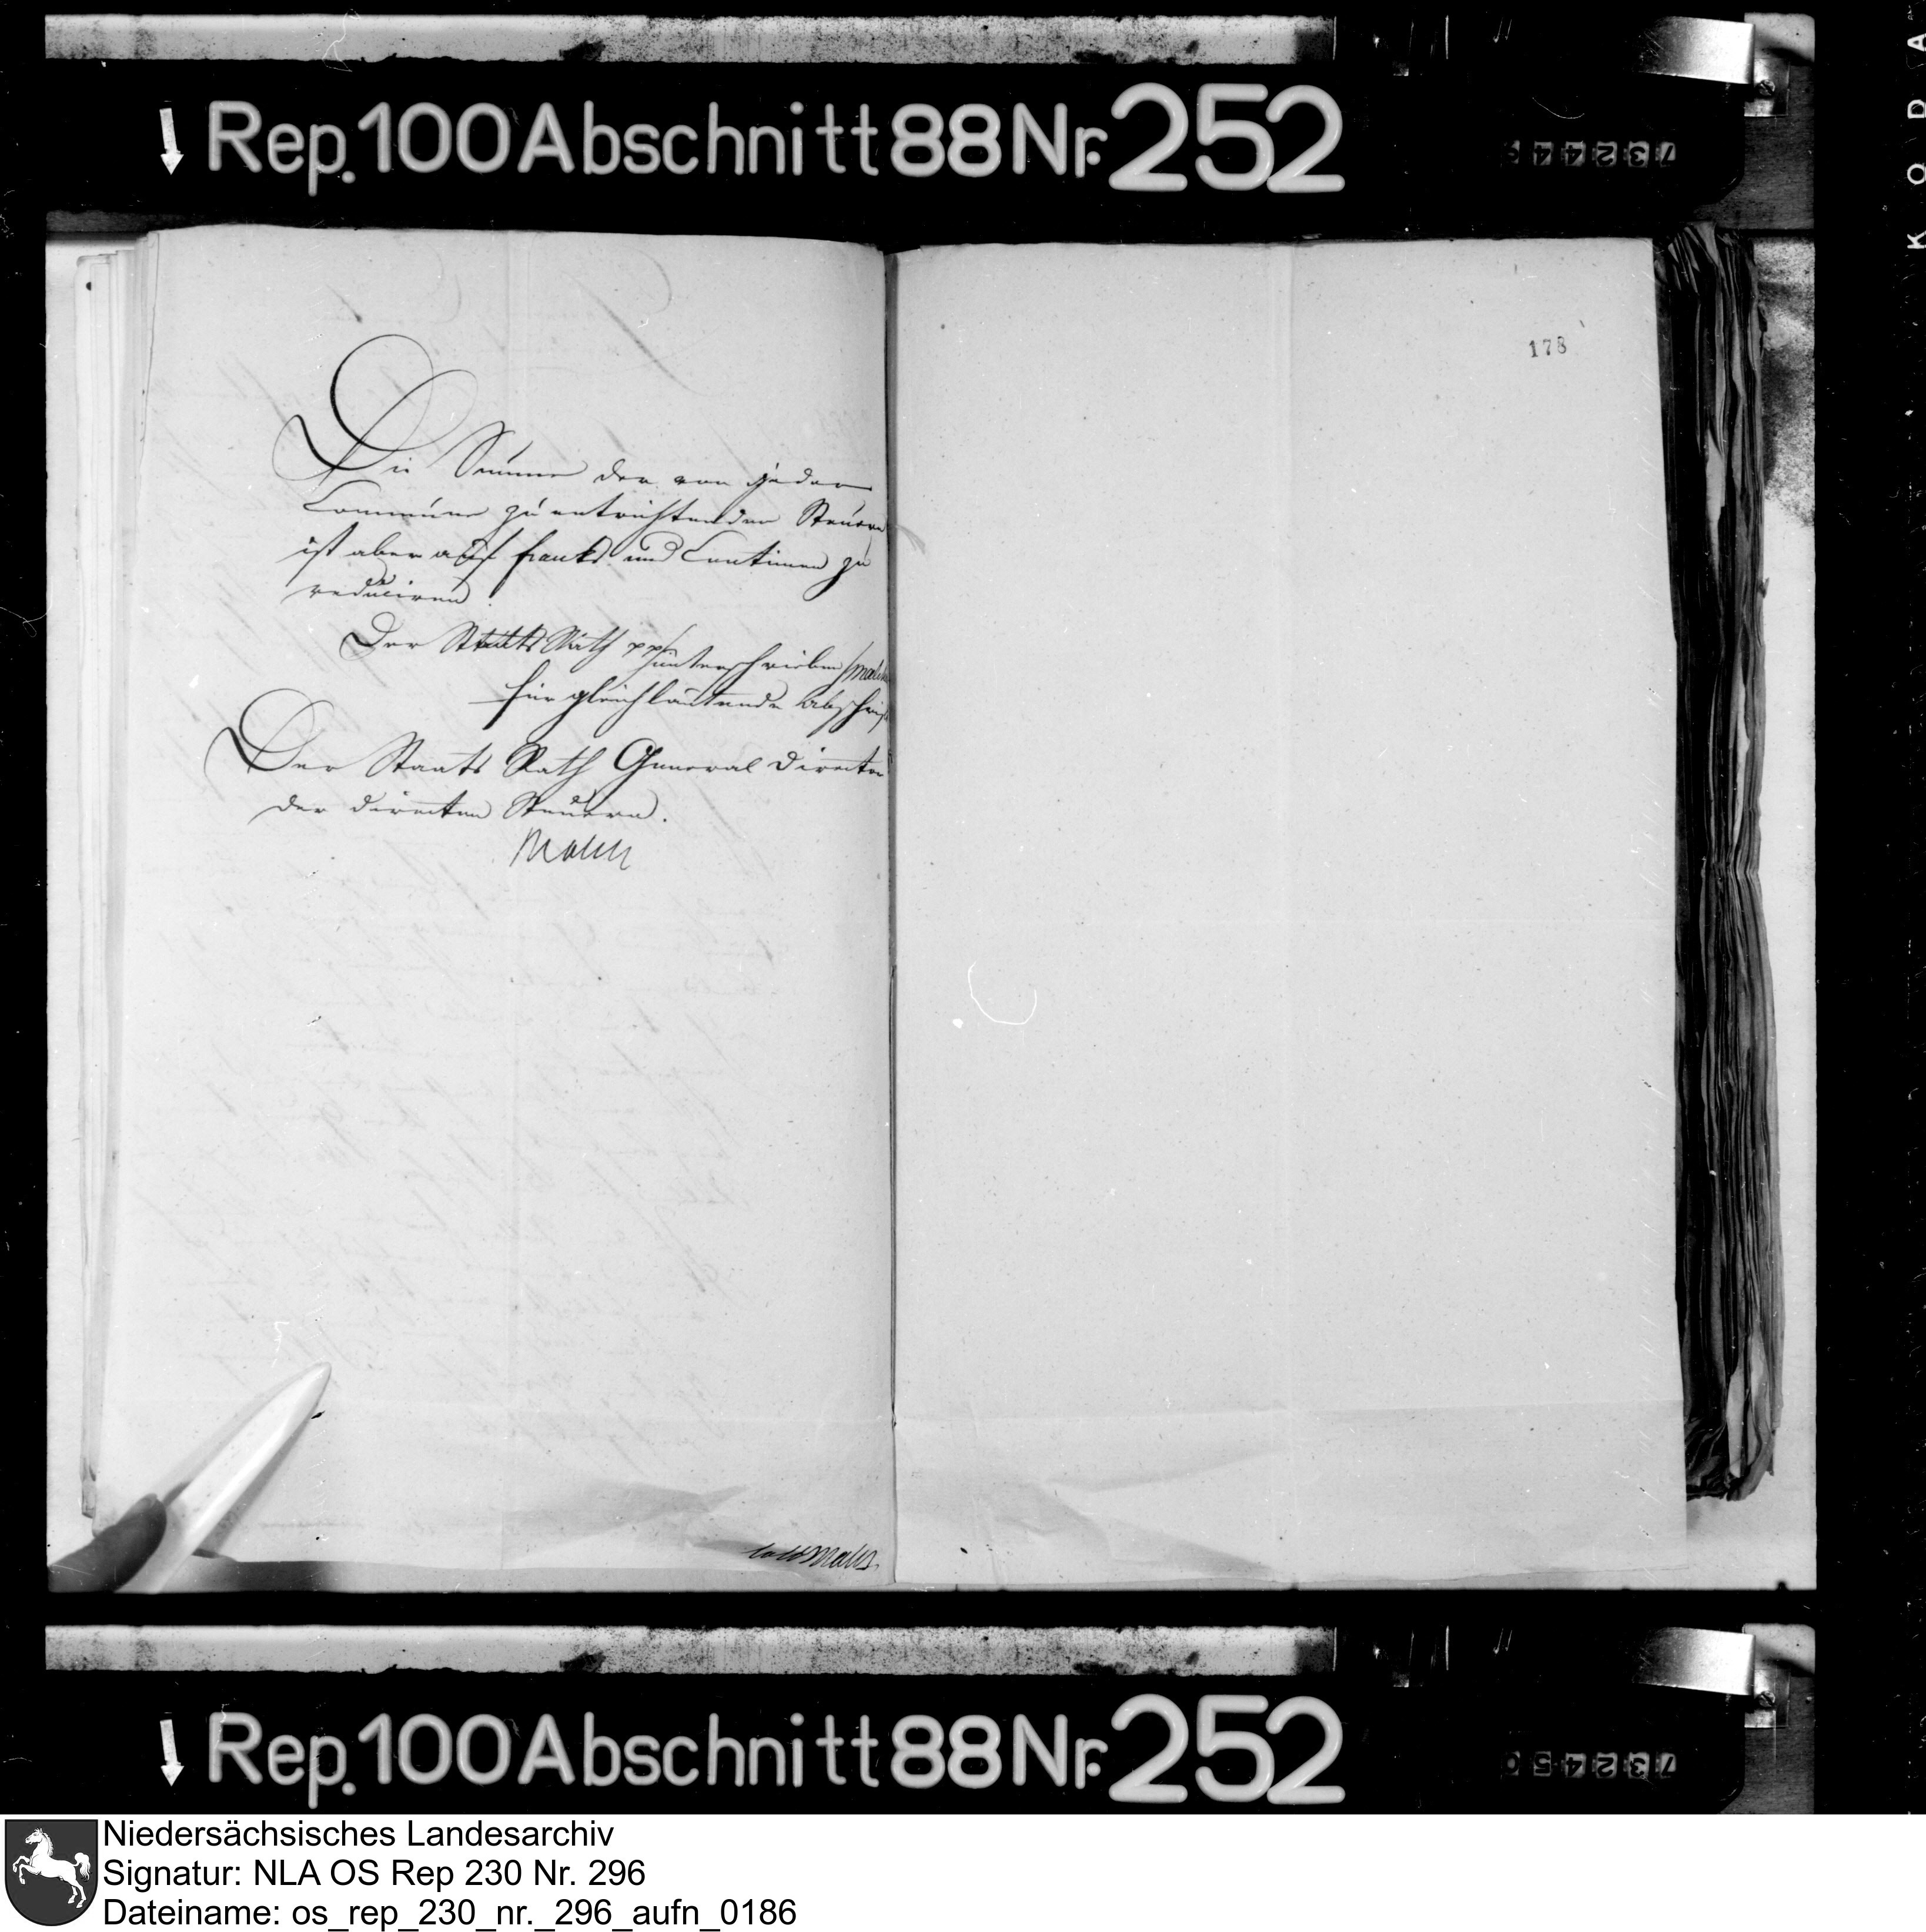 Rep. 100 Abschnitt 88 Nr. 252
178
Die Summe der von jeder
Commüne zu entrichtenden Steuern
ist aber auf franks und Centimen zu
reduciren.
Der Staats Rath pp unterschrieben
für gleichlautende Abschrift
Der Staats Rath General Director
der directen Steuern.
Malch
Rep. 100 Abschnitt 88 Nr. 252
Niedersächsisches Landesarchiv
Signatur: NLA OS Rep 230 Nr. 296
Dateiname: os_rep_230_nr._296_aufn_0186